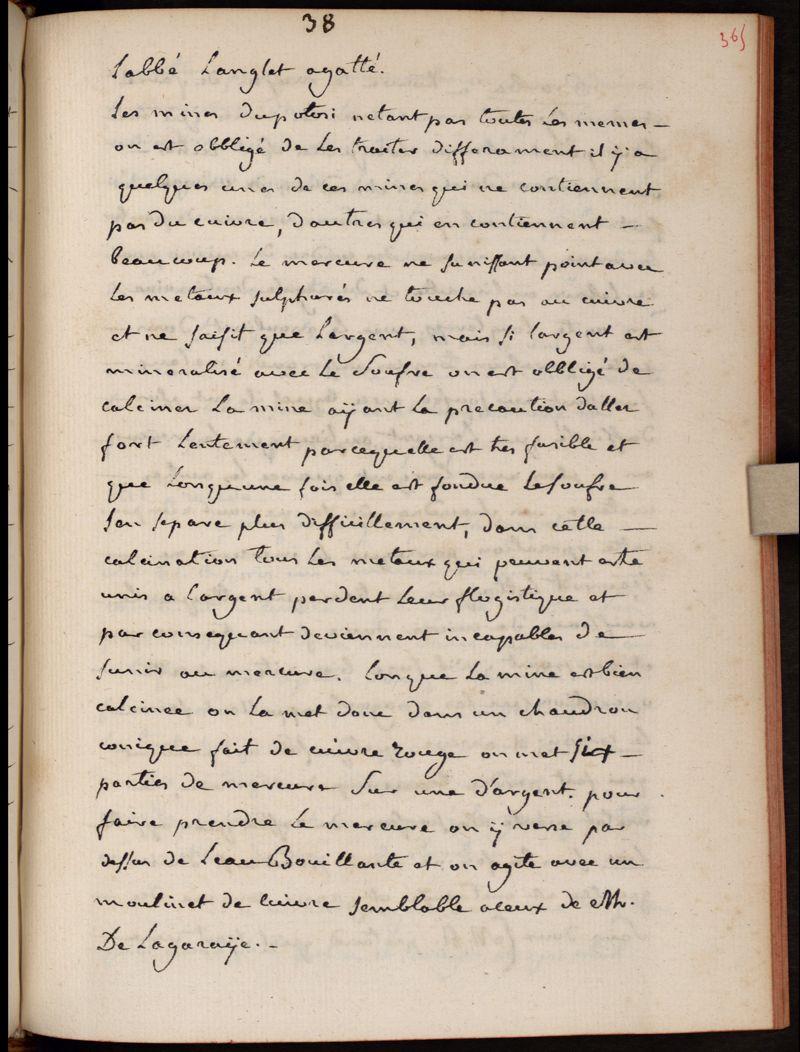 38
365
l'abbé Langlet agatté.
Les mines dupotosi netant pas toutes les memes —
on est obbligé de les traiter differament il ÿ a
quelques unes de ces mines qui ne contiennent
pas du cuivre, dautres qui en contiennent —
beaucoup. Le mercure ne sunissant point avec
les metaux sulphurés ne touche pas au cuivre
et ne saisit que Largent, mais si largent est
mineralisé avec Le Soufre on est obbligé de
calciner La mine aÿant La precaution daller
fort Lentement parcequelle est tres fusible et
que Lorsqu'une fois elle est fondue Le soufre
sen separe plus difficillement, dans cette —
calcination tous Les metaux qui peuvent estre
unis a l'argent perdent Leur flogistique et
par consequant deviennent incapables de
sunir au mercure. Lorsque La mine est bien
calcinee on La met donc dans un chaudron
conique fait de cuivre rouge on met six —
parties de mercure sur une d'argent. pour
faire prendre Le mercure on ÿ verse par
dessus de Leau Bouillante et on agite avec un
moulinet de cuivre semblable aceux de Mr.
De Lagaraÿe. —